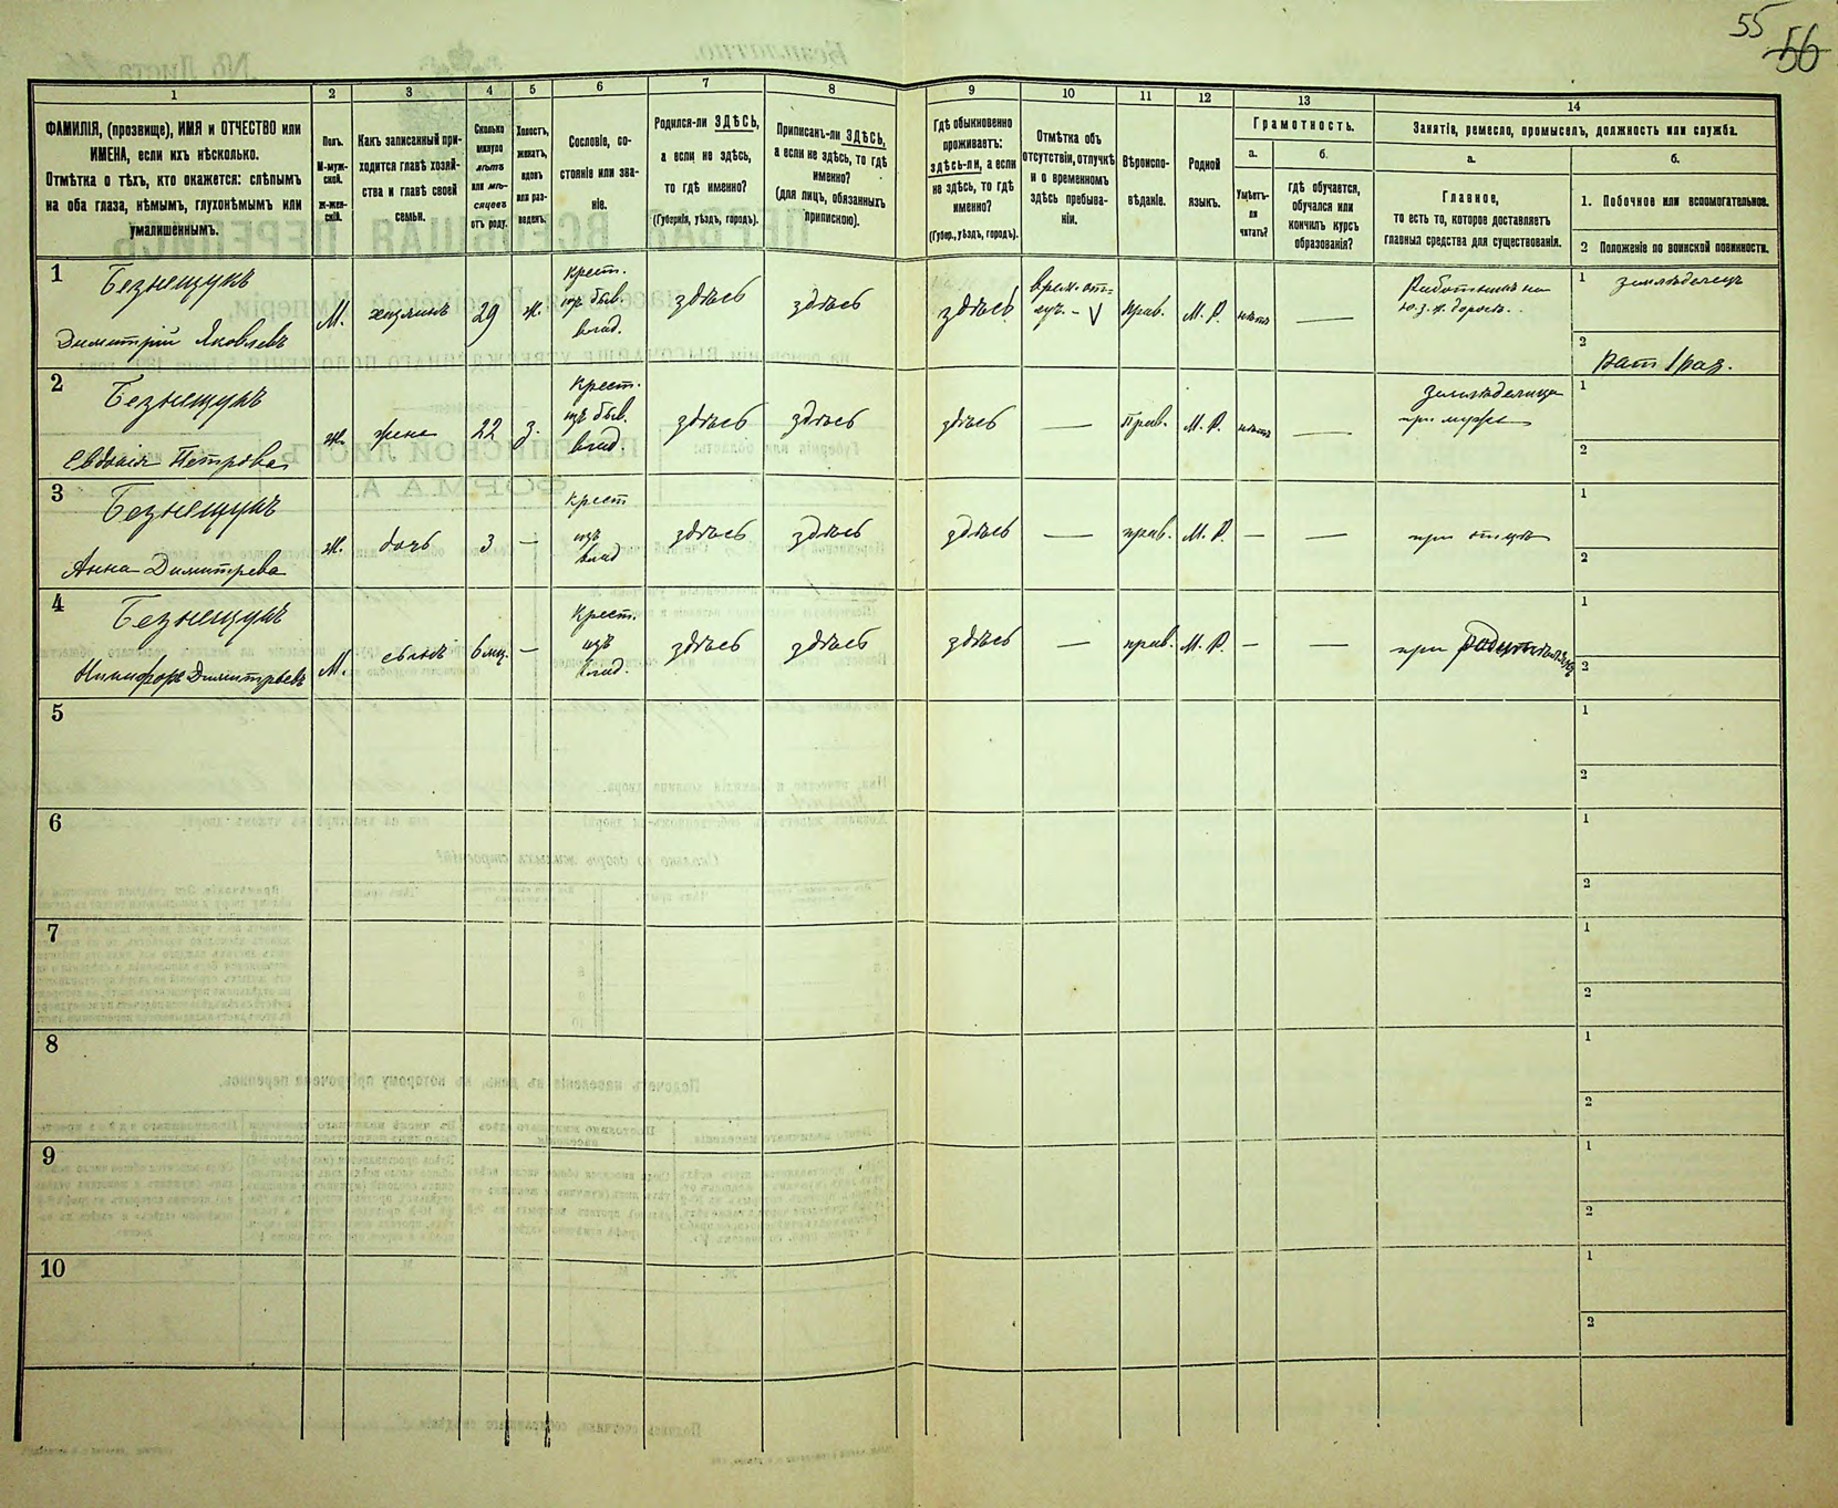 55
56
1
2
3
4
5
6
7
8
9
10
11
12
13
14
ФАМИЛІЯ, (прозвище), ИМЯ и ОТЧЕСТВО или
ИМЕНА, если ихъ нѣсколько.
Отмѣтка о тѣхъ, кто окажется: слѣпымъ
на оба глаза, нѣмымъ, глухонѣмымъ или
умалишеннымъ.
Полъ.
М-муж-
ской.
ж-жен-
скій.
Какъ записанный при-
ходится главѣ хозяй-
ства и главѣ своей
семьи.
Сколько
минуло
лѣтъ
или мѣ-
сяцевъ
отъ роду.
Холостъ,
женатъ,
вдовъ
или раз-
веденъ.
Сословіе, со-
стояніе или зва-
ніе.
Родился-ли ЗДѢСЬ,
а если не здѣсь,
то гдѣ именно?
(Губернія, уѣздъ, городъ).
Приписанъ-ли ЗДѢСЬ,
а если не здѣсь, то гдѣ
именно?
(для лицъ, обязанныхъ
припискою).
Гдѣ обыкновенно
проживаетъ:
здѣсь-ли, а если
не здѣсь, то гдѣ
именно?
(Губер., уѣздъ, городъ).
Отмѣтка объ
отсутствіи, отлучкѣ
и о временномъ
здѣсь пребыва-
ніи.
Вѣроиспо-
вѣданіе.
Родной
языкъ.
Грамотность.
а.
Умѣетъ-
ли
читать?
б.
гдѣ обучается,
обучался или
кончилъ курсъ
образованія?
Занятіе, ремесло, промыселъ, должность или служба.
а.
Главное,
то есть то, которое доставляетъ
главныя средства для существованія.
б.
1. Побочное или вспомогательное.
2 Положеніе по воинской повинности.
1
Безнещукъ
Димитрій Яковлевъ
М.
хозяинъ
29
ж.
крест.
из быв.
влад.
здѣсь
здѣсь
здѣсь
врем. от-
луч. - V
Прав.
М. Р.
нѣтъ
—
Работникъ на
Ю. з. ж. дорогѣ.
1 земледелецъ
2 Рат 1 раз.
2
Безнещукъ
Евдокія Петрова
ж.
жена
22
З.
Крест.
изъ быв.
влад.
здѣсь
здѣсь
здѣсь
—
Прав.
М. Р.
нѣтъ
—
Земледелица
при мужѣ
1
2
3
Безнещукъ
Анна Димитрева
ж.
дочь
3
—
Крест
изъ
влад
здѣсь
здѣсь
здѣсь
—
прав.
М. Р.
—
—
при отцѣ
1
2
4
Безнещукъ
Никифоръ Димитрьевъ
М.
сынъ
6 мц.
—
Крест.
изъ
влад.
здѣсь
здѣсь
здѣсь
—
прав.
М. Р.
—
—
при родителяхъ
1
2
5
1
2
6
1
2
7
1
2
8
1
2
9
1
2
10
1
2